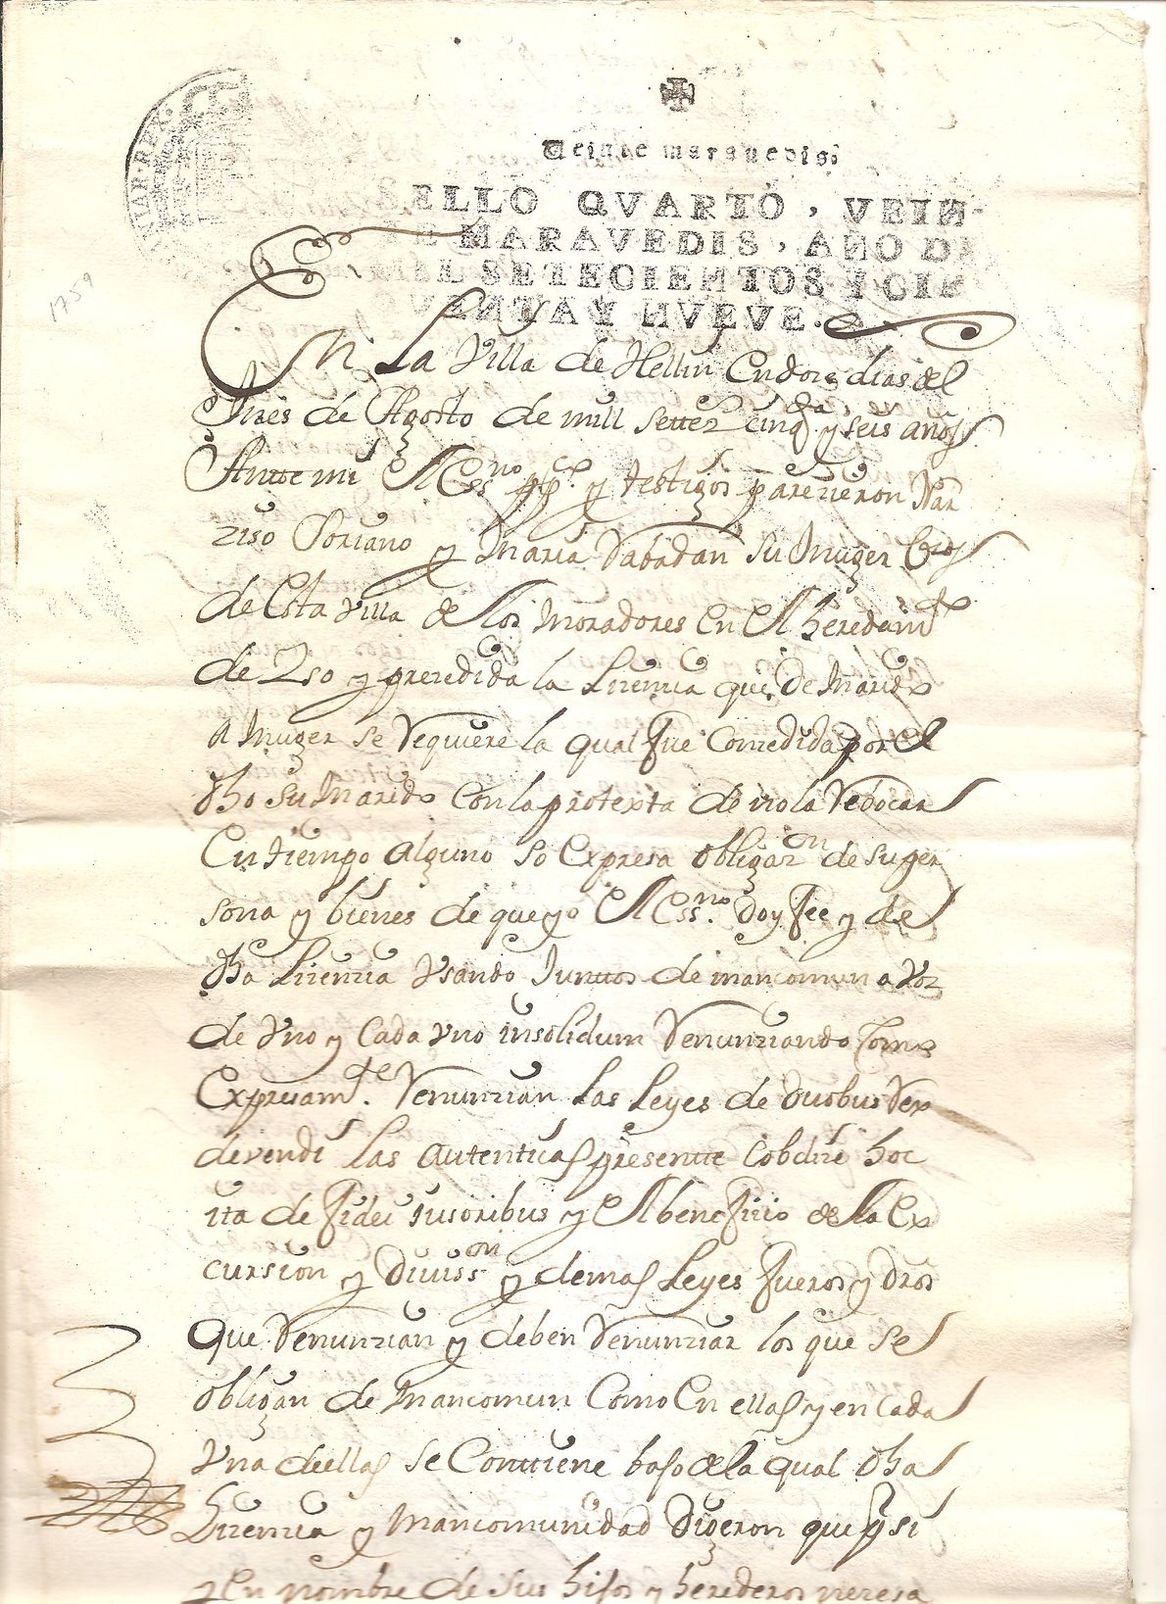 TAR·REX·
Veinte maravedis
SELLO QVARTO, VEIN-
TE MARAVEDIS, AÑO DE
MIL SETECIENTOS Y CIN
VENTA Y NVEVE.
1759
En la Villa de Hellin En doze dias del
Mes de Agosto de mill settez cinq.ta y seis años
Ante mi el Ess.no pp.co y testigos pareçieron Nar
ziso Soriano y Maria Sabadan su Muger Vezos
de Esta villa de los moradores En el heredam.to
de Yso y prezedida la Lizenzia que de Marido
a Muger se Requiere la qual fue Conzedida por el
dho su Marido Con la protexta de no la Rebocar
En tiempo alguno so Expresa obligaz.on de su per
sona y bienes de que yo el Ess.no doy fee y de
dha Lizenzia Vsando Juntos de mancomun a voz
de Vno y Cada vno insolidum Renunziando Como
Expresam.te Renunzian las Leyes de duobus Rex
devendi las autenticas presente Cobdize hoc
ita de fidei iusoribus y el benefizio de la Ex
cursion y Diuiss.on y demas Leyes fueros y dros
Que Renunzian y deben Renunziar los que se
obligan de Mancomun Como En ellas y en cada
Vna de ellas se Contiene baso de la qual dha
Lizenzia y Mancomunidad Dixeron que por si
y En nombre de sus hijos y herederos